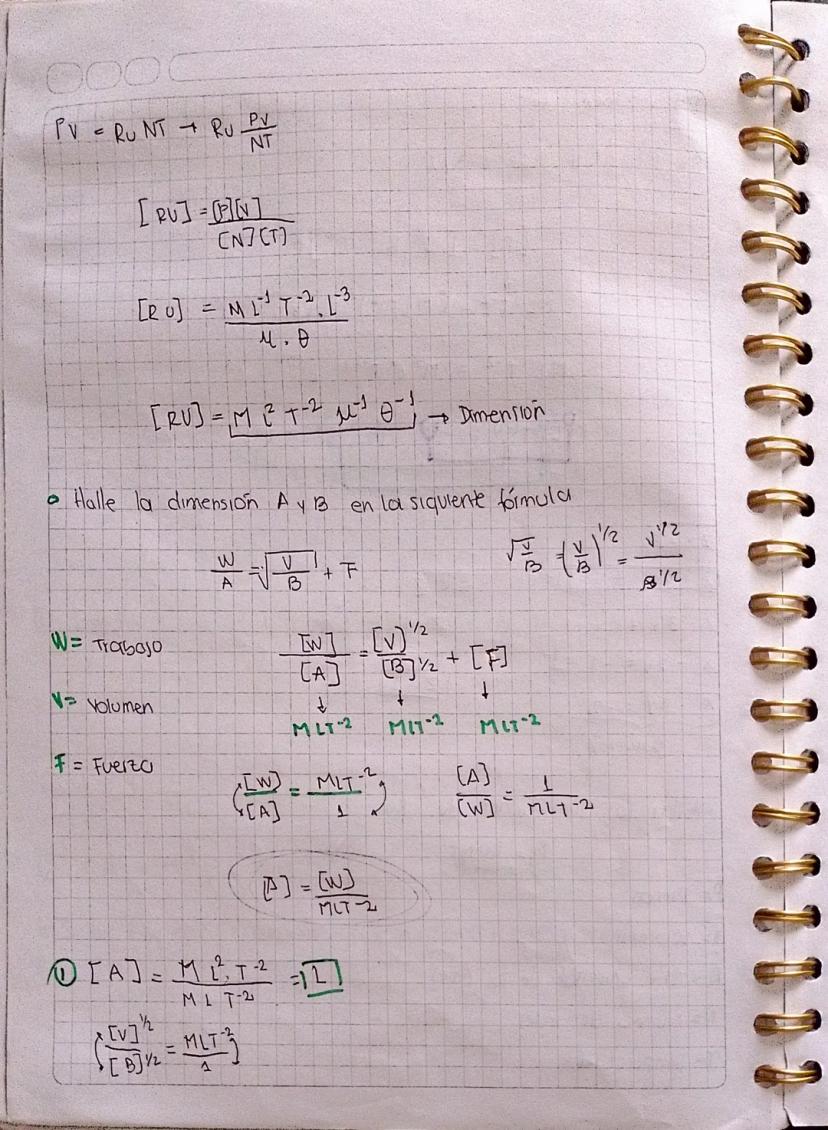 PV = Ru NT → Ru PV/NT
[RU] = [P][V]/[N][T]
[RU] = M L⁻¹ T⁻² . L⁻³/μ . θ
[RU] = M L² T⁻² μ⁻¹ θ⁻¹ → Dimensión
• Halle la dimensión A y B en la siquiente fórmula
W/A = √(V/B) + F
√(V/B) = (V/B)^1/2 = V^1/2/B^1/2
W = Trabajo
[W]/[A] = [V]^1/2/[B]^1/2 + [F]
V = Volumen
↓ ↓ ↓
MLT⁻² MLT⁻² MLT⁻²
F = Fuerza
[W]/[A] = MLT⁻²/1
[A]/[W] = 1/MLT⁻²
[A] = [W]/MLT⁻²
① [A] = M L². T⁻²/M L T⁻² = L
[V]^1/2/[B]^1/2 = MLT⁻²/1